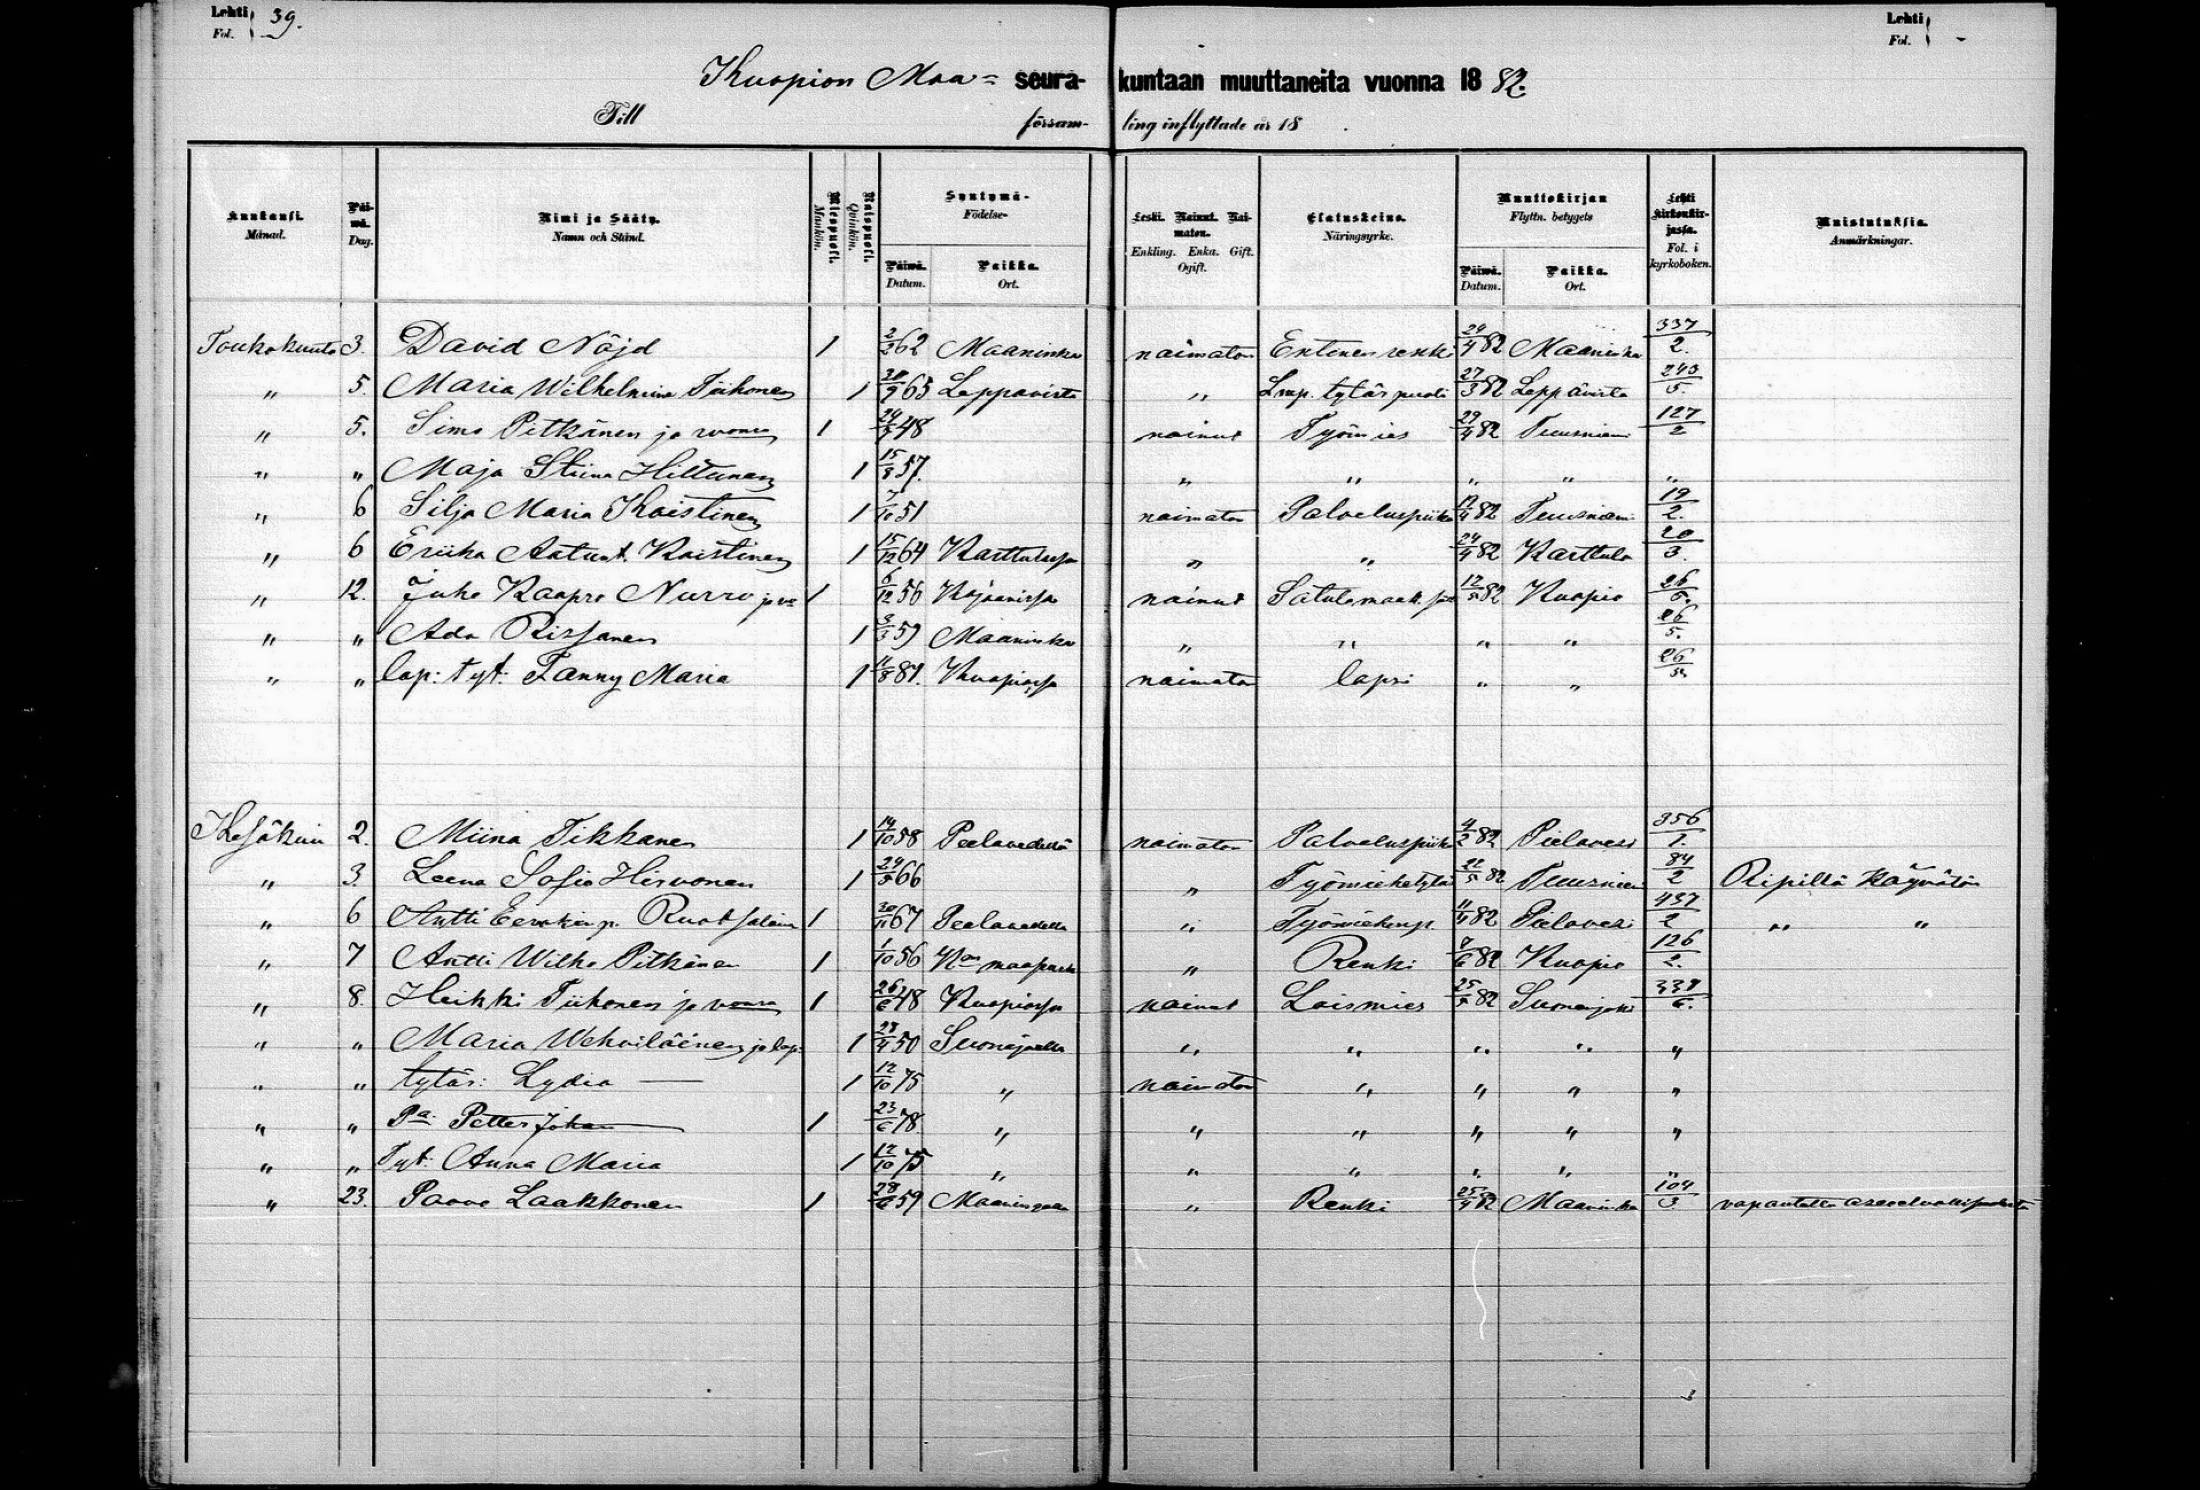 Lehti 39. Lehti
Fol. Fol.
Kuopion Maa= seura- kuntaan muuttaneita vuonna 18 82.
Till försam- ling inflyttade år 18 .
Kuukausi. Månad. Päi-wä. Dag. Nimi ja Sääty. Namn och Stånd. Miespuoli. Mankön. Naispuoli. Qvinkön. Syntymä- Födelse- Päiwä. Datum. Paikka. Ort. Leski. Nainut. Nai-maton. Enkling. Enka. Gift. Ogift. Elatuskeino. Näringsyrke. Muuttokirjan Flyttn. betygets Päiwä. Datum. Paikka. Ort. Lehti kirkonkir-jassa. Fol. i kyrkoboken. Muistutuksia. Anmärkningar.
Toukokuuta 3. David Nöjd 1 2/2 62 Maaninka naimaton Entinen renki 24/4 82 Maaninka 337/2.
" 5. Maria Wilhelmiina Tiihonen 1 65 Leppävirta " Lmp. tytär puoli 27/3 82 Leppävirta 5.
" 5. Simo Pitkänen ja vaimo 1 48 nainut Työmies 29/4 82 Tuusniemi 127/2
" " Maja Stiina Hiltunen 1 15/8 57. " " " " "
" 6 Silja Maria Koistinen 1 7/10 51 naimaton Palveluspiika 82 Tuusniemi 19/2.
" 6 Eriika Aatunt. Koistinen 1 15/12 64 Karttulassa " " 24/4 82 Karttula 20/3.
" 12. Juho Kaapro Nurro ja 1 6/12 56 Kajaanissa nainut 12/5 82 Kuopio 26
" " Ada Rissanen 1 3/3 59 Maaninka " " " " 26/5.
" " lap: tyt: Fanny Maria 1 11/8 81. Kuopiossa naimaton lapsi " " 26/5
Kesäkuu 2. Miina Tikkanen 1 14/10 58 Pielavedellä naimaton Palveluspiika 4/2 82 Pielavesi 356/1.
" 3. Leena Sofia Hirvonen 1 24/5 66 " Työmiehetytär 22/5 82 Tuusniemi 84/2 Ripillä käymätön
" 6 Antti Eerikin p. Ruotsalainen 1 30/11 67 Pielavedellä " Työmiehenp. 11/4 82 Pielavesi 437/2 " "
" 7 Antti Wilho Pitkänen 1 1/10 56 " Renki 82 Kuopio 126/2.
" 8. Heikki Tiihonen ja vaimo 1 26/6 48 Kuopiossa nainut Loismies 25/5 82 Suonenjoki 6.
" " Maria Wehviläinen ja lap: 1 28/4 50 Suonejoella " " " " "
" " tytär: Lydia — 1 12/10 75 " naimaton " " " "
" " Pa. Petter Johan 1 23/6 78 " " " " " "
" " Tyt: Anna Maria 1 12/10 75 " " " " " "
" 23. Paavo Laakkonen 1 28/6 59 Maaningalla " Renki 25/4 82 Maaninka 104/3 vapautettu